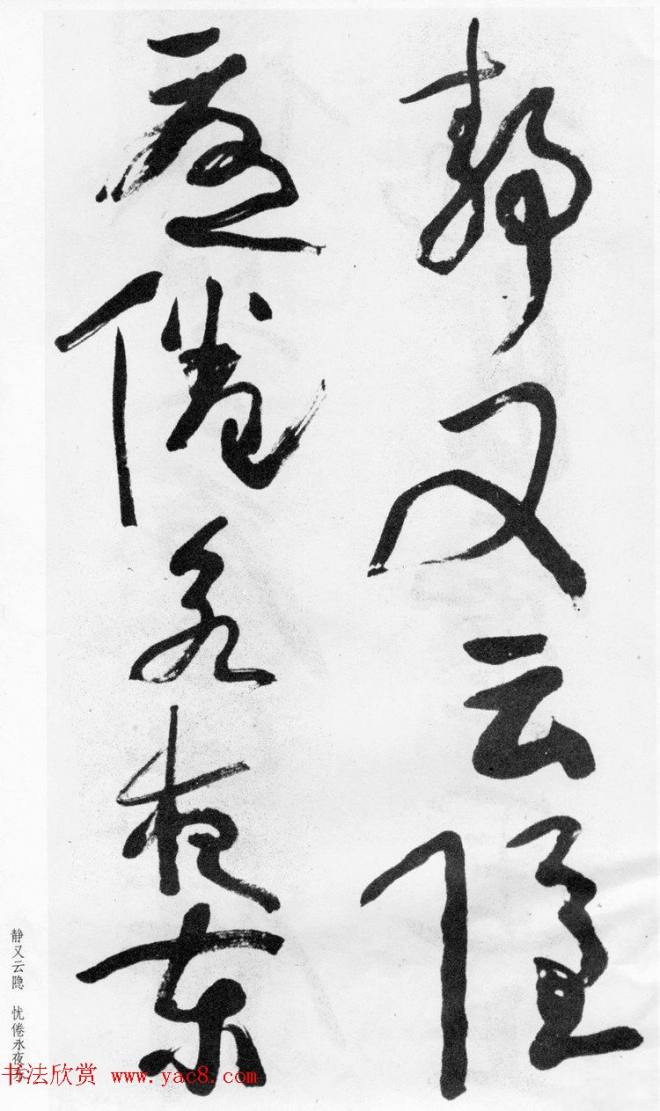 静又云隐
忧倦永夜东
静又云隐 忧倦永夜
书法欣赏 www.yac8.com